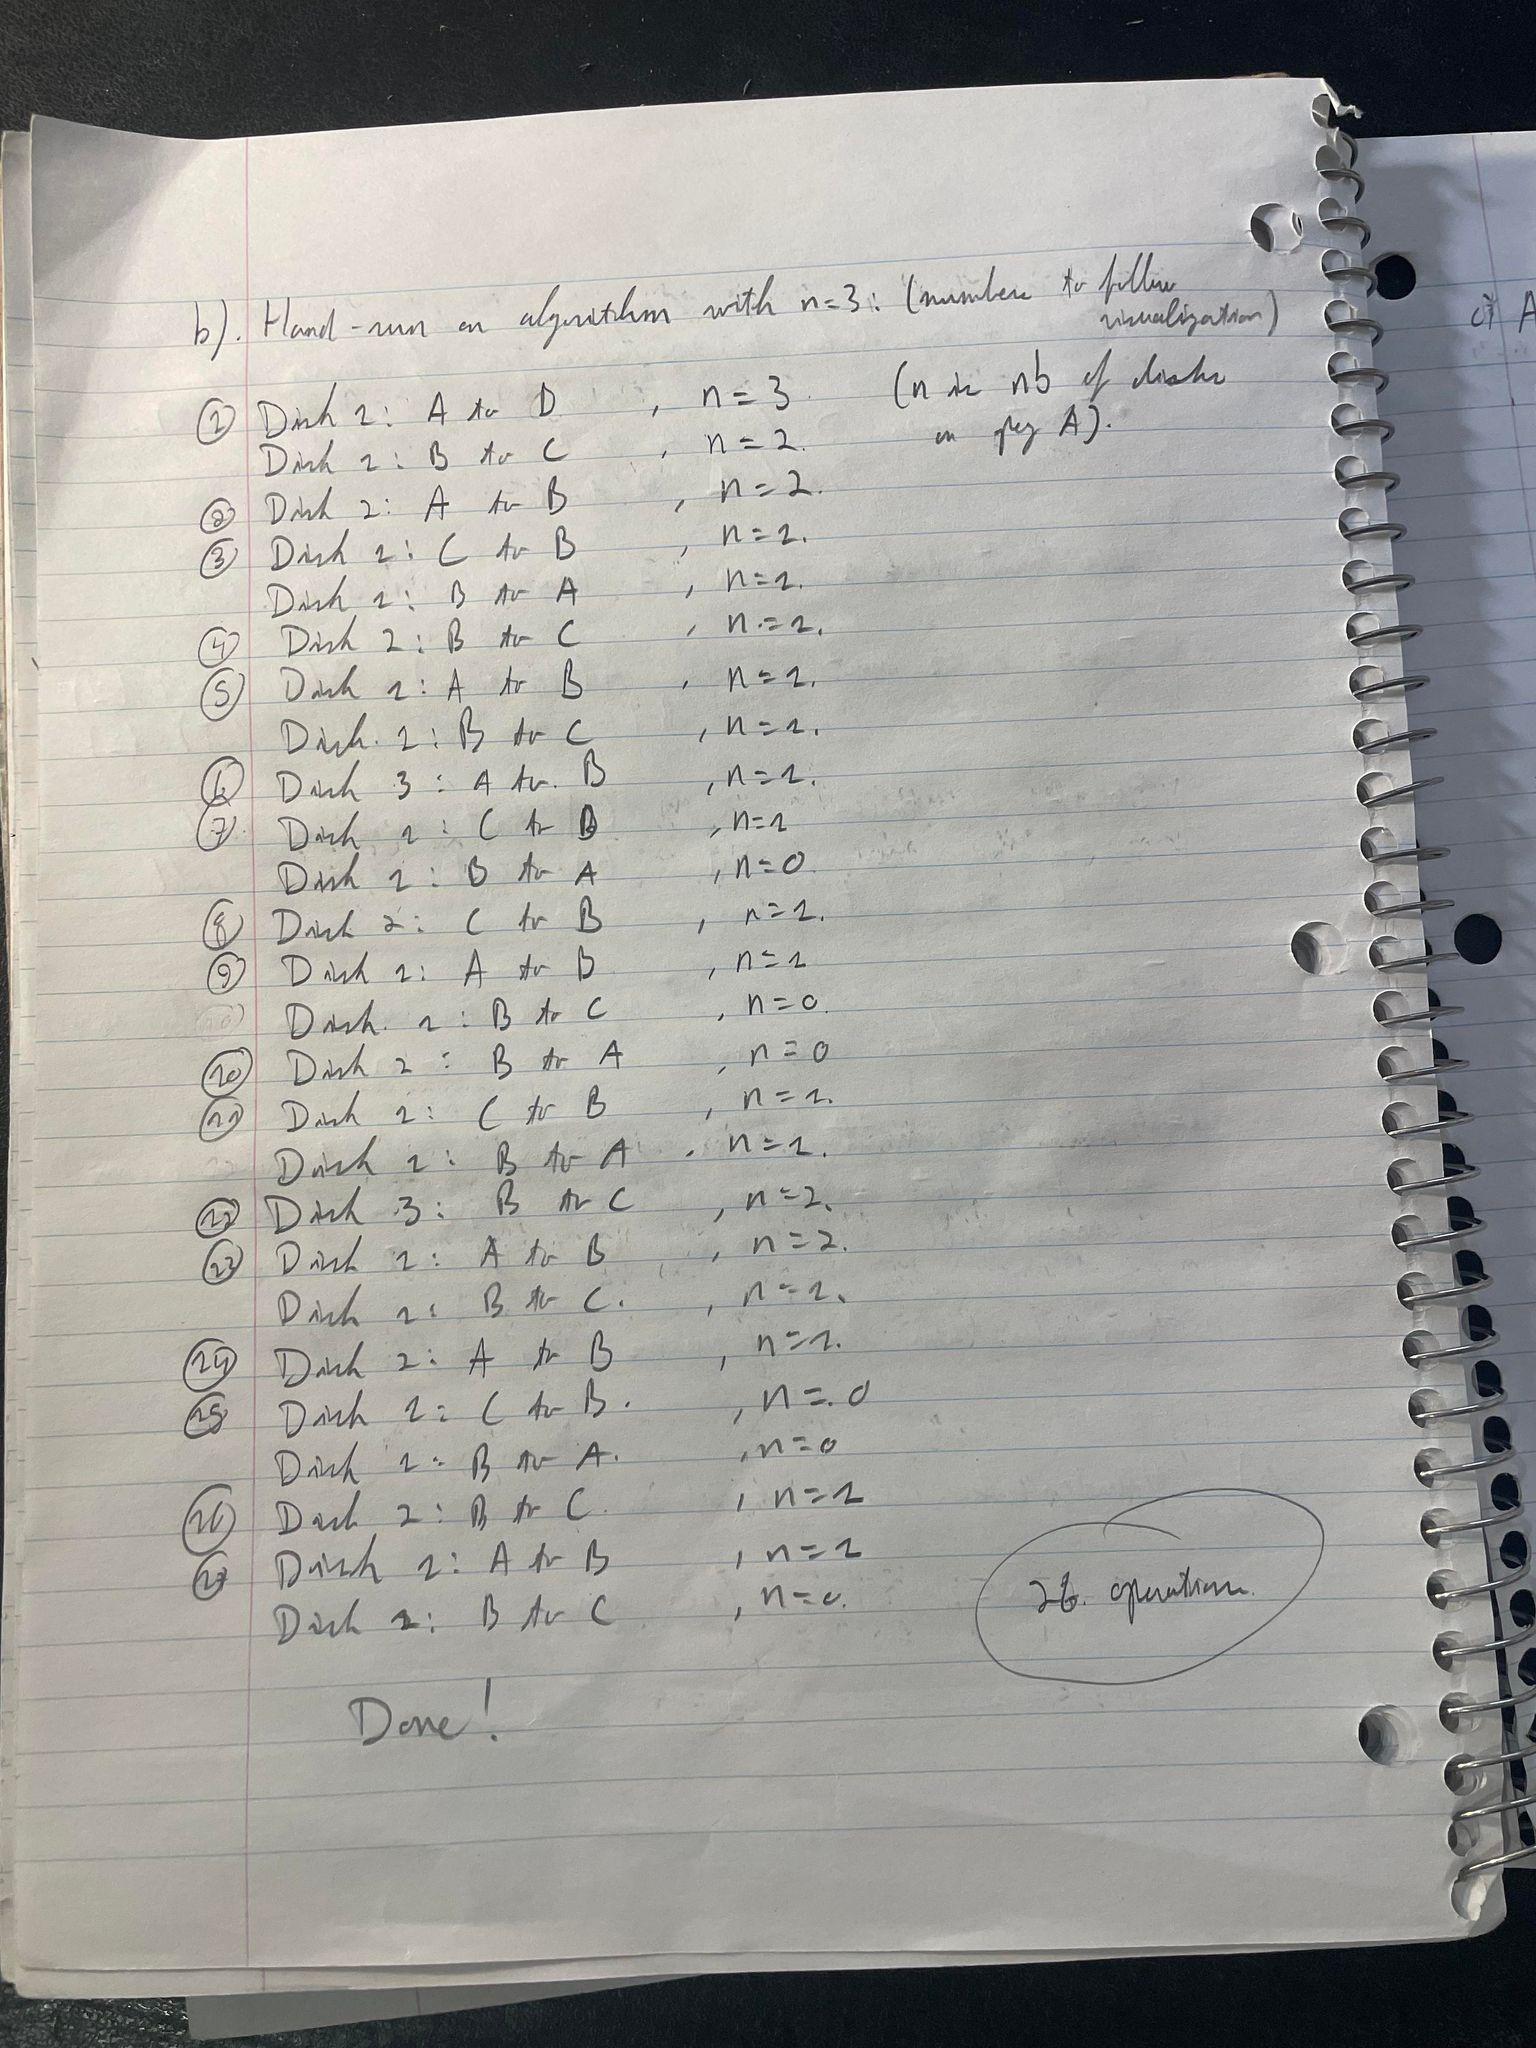 b). Hand-run on algorithm with n=3: (numbers to follow
visualization)
① Disk 1: A to B , n=3 (n is nb of disks
on peg A).
Disk 1: B to C , n=2.
② Disk 2: A to B , n=2.
③ Disk 1: C to B , n=1.
Disk 1: B to A , n=1.
④ Disk 2: B to C , n=1.
⑤ Disk 1: A to B , n=1.
Disk 1: B to C , n=1.
⑥ Disk 3: A to B , n=1.
⑦ Disk 1: C to B , n=1
Disk 1: B to A , n=0
⑧ Disk 2: C to B , n=1.
⑨ Disk 1: A to B , n=1
Disk 1: B to C , n=0.
⑩ Disk 2: B to A , n=0
⑪ Disk 1: C to B , n=1.
Disk 1: B to A , n=1.
⑫ Disk 3: B to C , n=2.
⑬ Disk 1: A to B , n=2.
Disk 1: B to C. , n=1.
⑭ Disk 2: A to B , n=1.
⑮ Disk 1: C to B. , n=0
Disk 1: B to A. , n=0
⑯ Disk 2: B to C. , n=1
⑰ Disk 1: A to B , n=1
Disk 1: B to C , n=0.
26 operations.
Done!